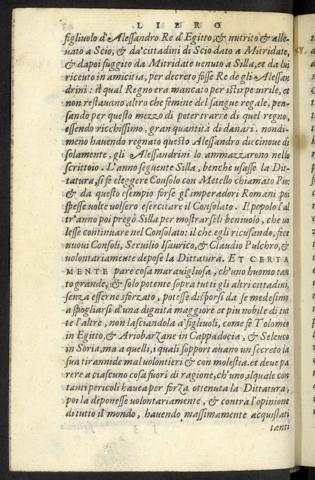 LIBRO
figliuolo d'Alessandro Re d'Egitto, & nutrito & alle-
uato a Scio, & da' cittadini di Scio dato a Mitridate,
& dapoi fuggito da Mitridate venuto a Silla, et da lui
riceuto in amicitia, per decreto fosse Re de gli Alessan-
drini: il qual Regno era mancato per istirpe uirile, et
non restauano altro che femine del sangue regale, pen-
sando per questo mezzo di poter trarre di quel regno,
essendo ricchissimo, gran quantità di danari. nondi-
meno hauendo regnato questo Alessandro diecinoue dì
solamente, gli Alessandrini lo ammazzarono nello
scrittoio. L'anno seguente Silla, benche usasse la Dit-
tatura, si fe eleggere Consolo con Metello chiamato Pio: et
& da questo esempio forse gl'imperadori Romani poi
spesse volte volsero esercitare il Consolato. Il popolo l'al
tr'anno poi pregò Silla per mostrarseli beniuolo, che uo
lesse continuare nel Consolato: il che egli ricusando, fece
nuoui Consoli, Seruilio Isaurico, & Claudio Pulchro, &
volontariamente depose la Dittatura. ET CERTA
MENTE pare cosa marauigliosa, ch'uno huomo tan
to grande, & solo potente sopra tutti gli altri cittadini,
senza esserno sforzato, potesse disporsi da se medesimo
a spogliarsi d'una dignità maggiore et piu nobile di tut
te l'altre, non lasciandola a' figliuoli, come fe Tolomeo
in Egitto, & Ariobarzane in Cappadocia, & Seleuco
in Soria, ma a quelli, i quali sopportauano un secreto la
sua tirannide mal volontieri & con molestia. et deue pa
rere a ciascuno cosa fuori di ragione, ch'uno, il quale con
tanti pericoli hauea per forza ottenuta la Dittatura,
poi la deponesse volontariamente, & contra l'opinione
di tutto il mondo, hauendo massimamente acquistati
tanti